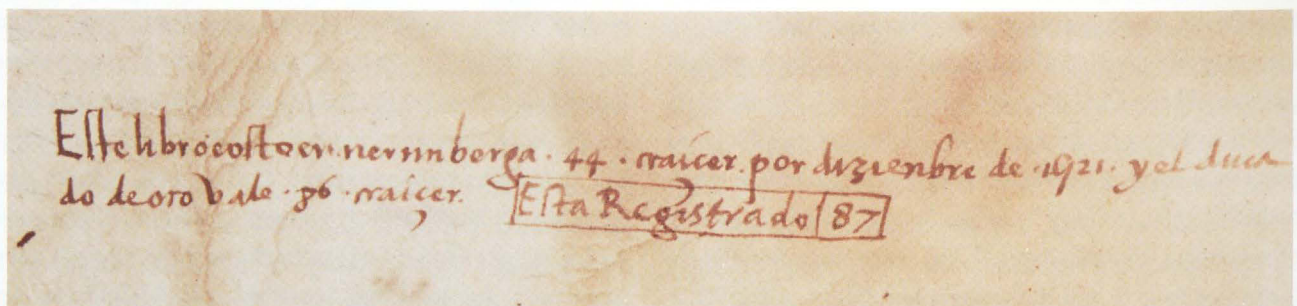 Este libro costo en nerumberga · 44 · craiçer. por dizienbre de · 1521 · y el duca
do de oro vale · 86 · craiçer.
Esta Registrado 87